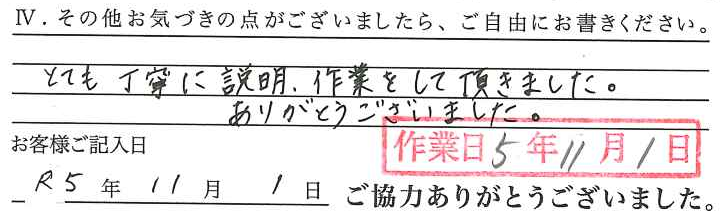 Ⅳ．その他お気づきの点がございましたら、ご自由にお書きください。
とても丁寧に説明、作業をして頂きました。
ありがとうございました。
お客様ご記入日
作業日5年11月1日
R5年11月1日 ご協力ありがとうございました。